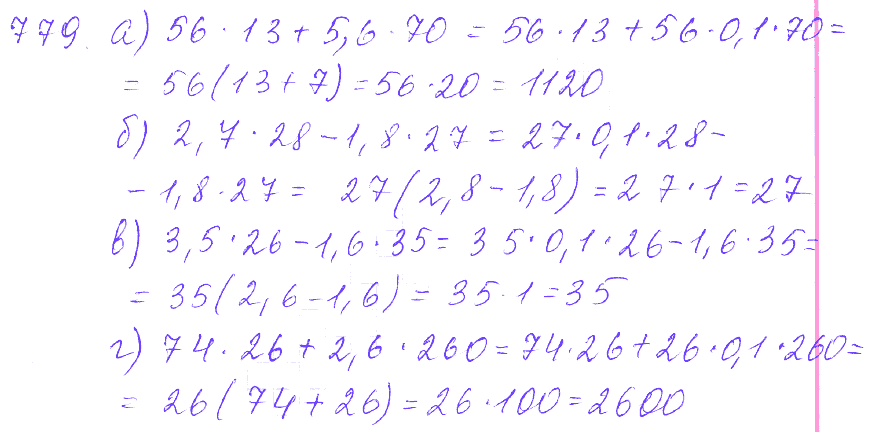 779 а) 56 · 13 + 5,6 · 70 = 56 · 13 + 56 · 0,1 · 70 =
= 56(13 + 7) = 56 · 20 = 1120
б) 2,7 · 28 – 1,8 · 27 = 27 · 0,1 · 28 –
– 1,8 · 27 = 27(2,8 – 1,8) = 27 · 1 = 27
в) 3,5 · 26 – 1,6 · 35 = 35 · 0,1 · 26 – 1,6 · 35 =
= 35(2,6 – 1,6) = 35 · 1 = 35
г) 74 · 26 + 2,6 · 260 = 74 · 26 + 26 · 0,1 · 260 =
= 26(74 + 26) = 26 · 100 = 2600